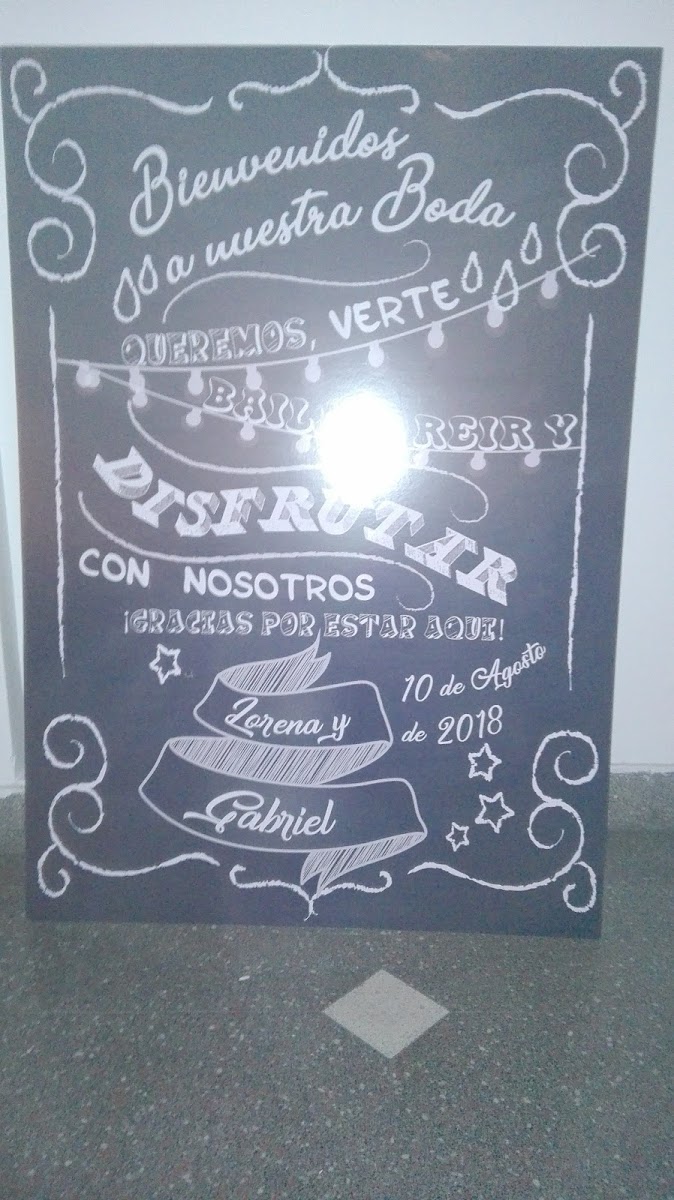 Bienvenidos
a nuestra Boda
QUEREMOS, VERTE
REIR Y
DISFRUTAR
CON NOSOTROS
¡GRACIAS POR ESTAR AQUI!
10 de Agosto
de 2018
Lorena y
Gabriel